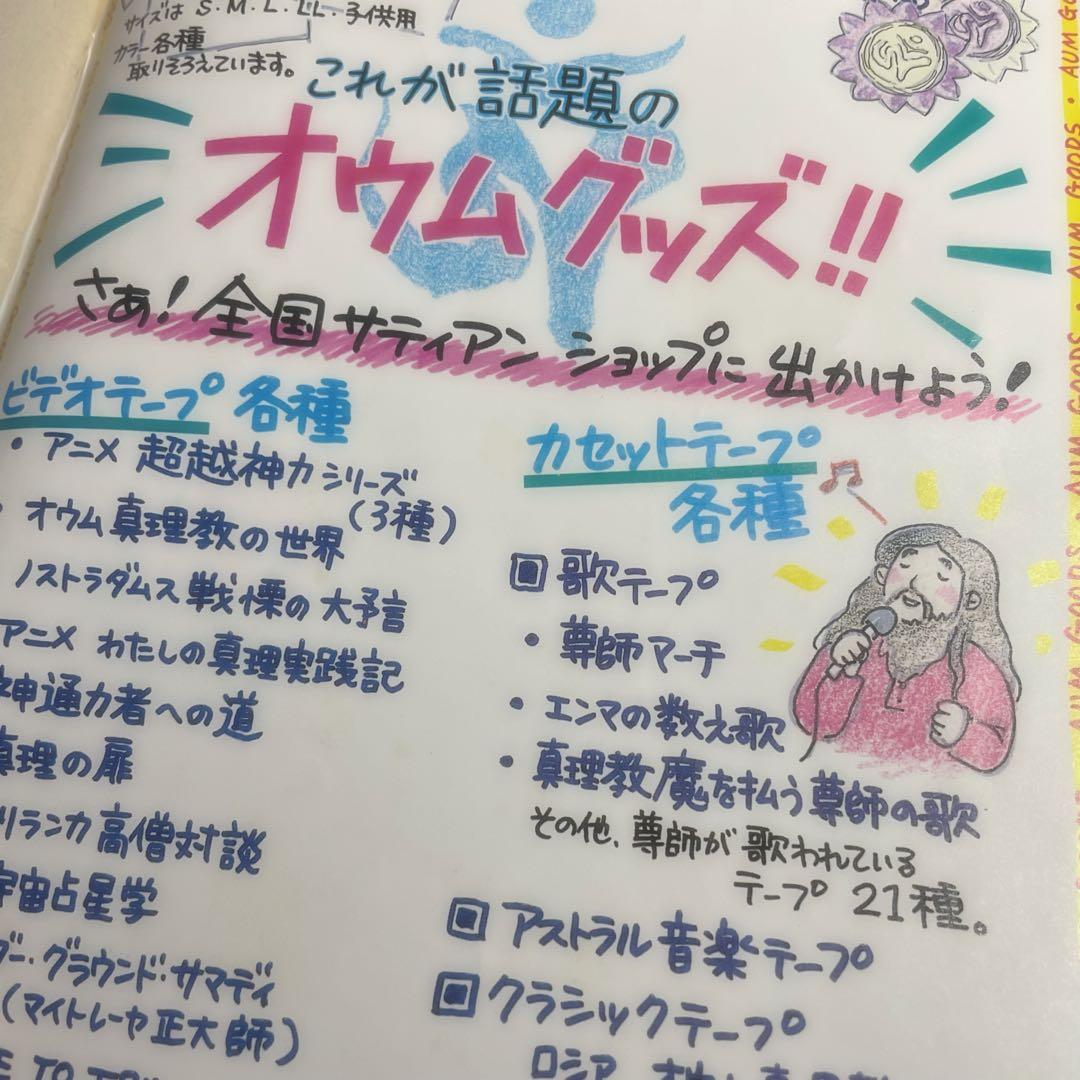 サイズは S.M.L.LL.子供用
カラー各種
取りそろえています。
これが話題の
オウムグッズ!!
さあ!全国サティアンショップに出かけよう!
ビデオテープ各種
・アニメ 超越神力シリーズ
(3種)
・オウム真理教の世界
ノストラダムス戦慄の大予言
アニメ わたしの真理実践記
神通力者への道
真理の扉
リランカ高僧対談
宇宙占星学
ダー・グラウンド・サマディ
(マイトレーヤ正大師)
カセットテープ
各種
歌テープ
・尊師マーチ
・エンマの数え歌
・真理教魔を払う尊師の歌
その他、尊師が歌われている
テープ 21種。
アストラル音楽テープ
クラシックテープ
ロシア
AUM GOODS・AUM GOODS・AUM GOODS・AUM GOODS